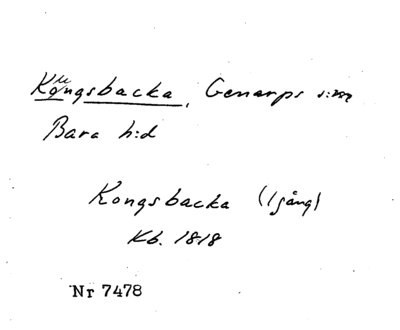 Kungsbacka, Genarps s:n
Bara h:d
Kongsbacka (1 gång)
Kb. 1818
Nr 7478